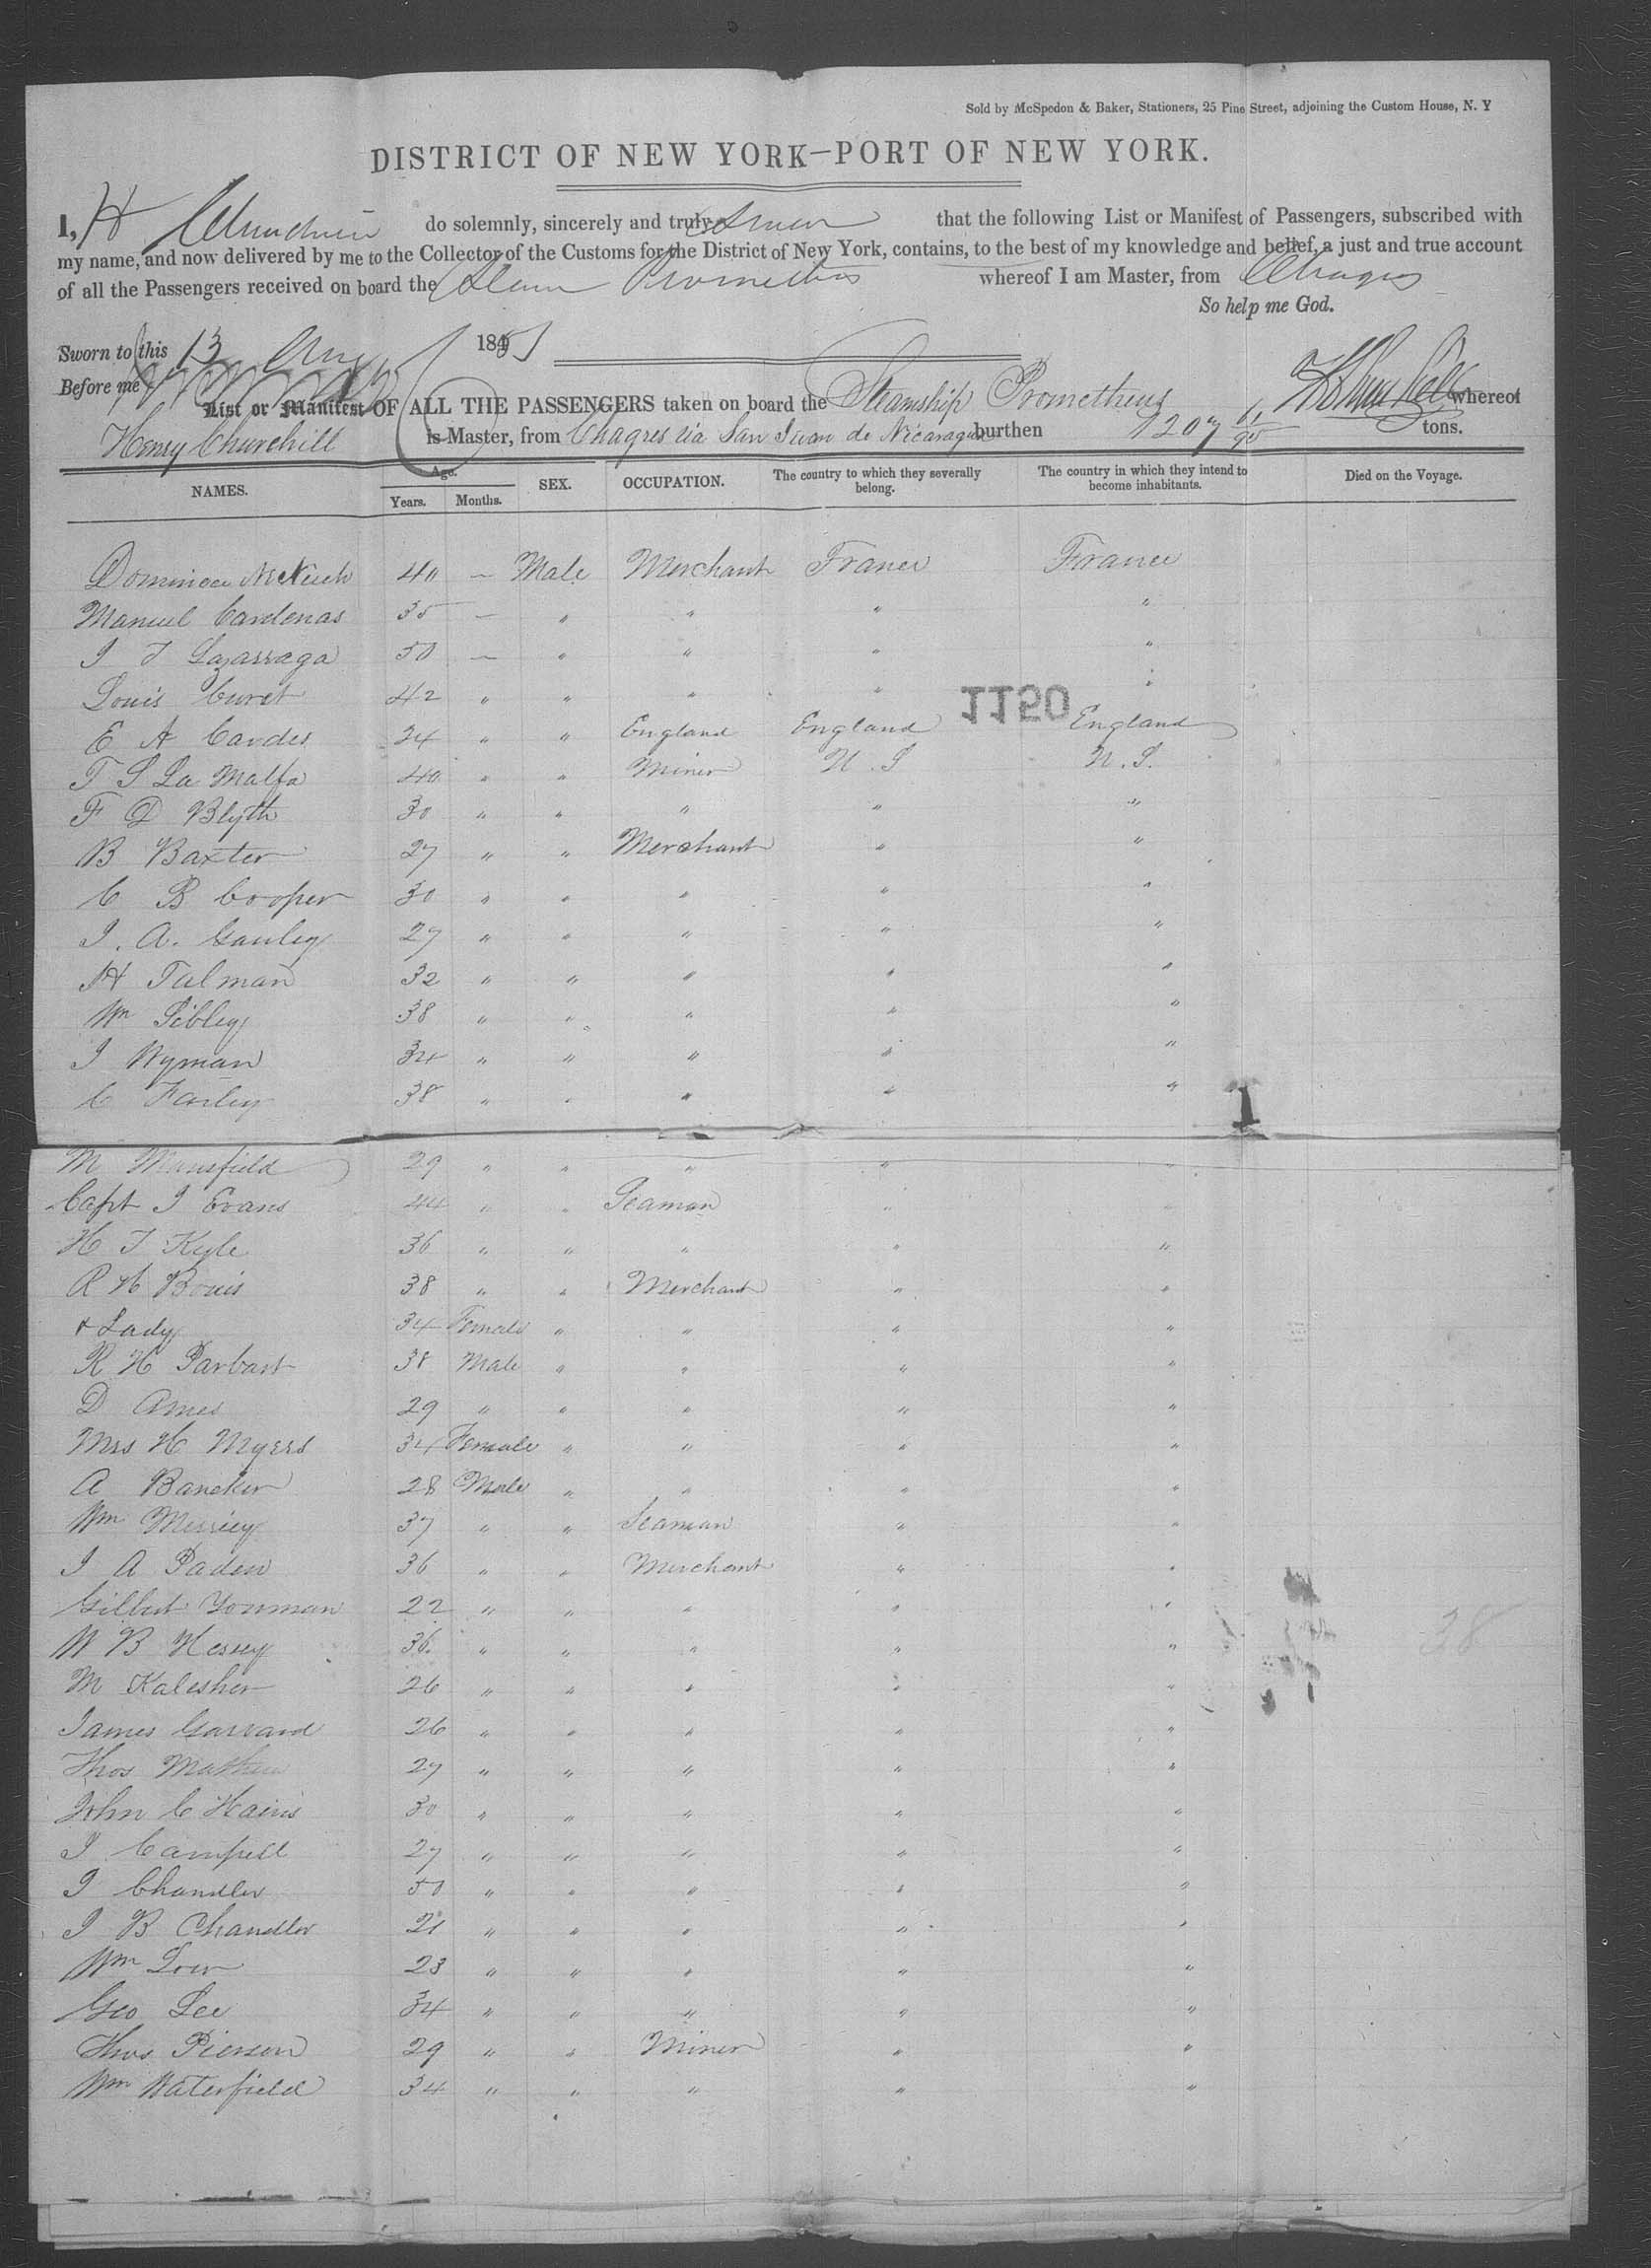 Sold by McSpedon & Baker, Stationers, 25 Pine Street, adjoining the Custom House, N. Y
DISTRICT OF NEW YORK—PORT OF NEW YORK.
I, H Churchill do solemnly, sincerely and truly swear that the following List or Manifest of Passengers, subscribed with
my name, and now delivered by me to the Collector of the Customs for the District of New York, contains, to the best of my knowledge and belief, a just and true account
of all the Passengers received on board the Steam Prometheus whereof I am Master, from Chagres
So help me God.
Sworn to this 13 Aug 1851
Before me
H Churchill
List or Manifest OF ALL THE PASSENGERS taken on board the Steamship Prometheus whereof
Henry Churchill is Master, from Chagres via San Juan de Nicaragua burthen 1207 tons.
NAMES. Age. Years. Months. SEX. OCCUPATION. The country to which they severally belong. The country in which they intend to become inhabitants. Died on the Voyage.
40 — Male Merchant France France
Manuel Cardenas 35 — " " " "
J T Lazarraga 50 — " " " "
Louis Curet 42 " " " " "
1150
E A Cardes 34 " " England England England
T S La Malfa 40 " " Miner U. S U. S.
F D Blyth 30 " " " " "
B Baxter 27 " " Merchant " "
C B Cooper 30 " " " " "
J. A. Gauley 27 " " " " "
H Talman 32 " " " " "
Wm Sibley 38 " " " " "
J Wyman 34 " " " " "
C Farley 38 " " " " "
M Mansfield 29 " " " " "
Capt J Evans 44 " " Seaman " "
H T Kyle 36 " " " " "
R H Bouis 38 " " Merchant " "
& Lady 34 Female " " " "
R H 38 Male " " " "
D Ames 29 " " " " "
Mrs H Myers 34 Female " " " "
A Bancker 28 Male " " " "
Wm 37 " " Seaman " "
J A Paden 36 " " Merchant " "
Gilbert Youman 22 " " " " "
W B Hersey 36 " " " " "
38
M Kalisher 26 " " " " "
James Garrard 26 " " " " "
Thos Mathew 27 " " " " "
John C Hains 30 " " " " "
J Campell 27 " " " " "
J Chandler 50 " " " " "
J B Chandler 21 " " " " "
Wm Low 23 " " " " "
Geo Lee 34 " " " " "
Thos Pierson 29 " " Miner " "
Wm Waterfield 34 " " " " "